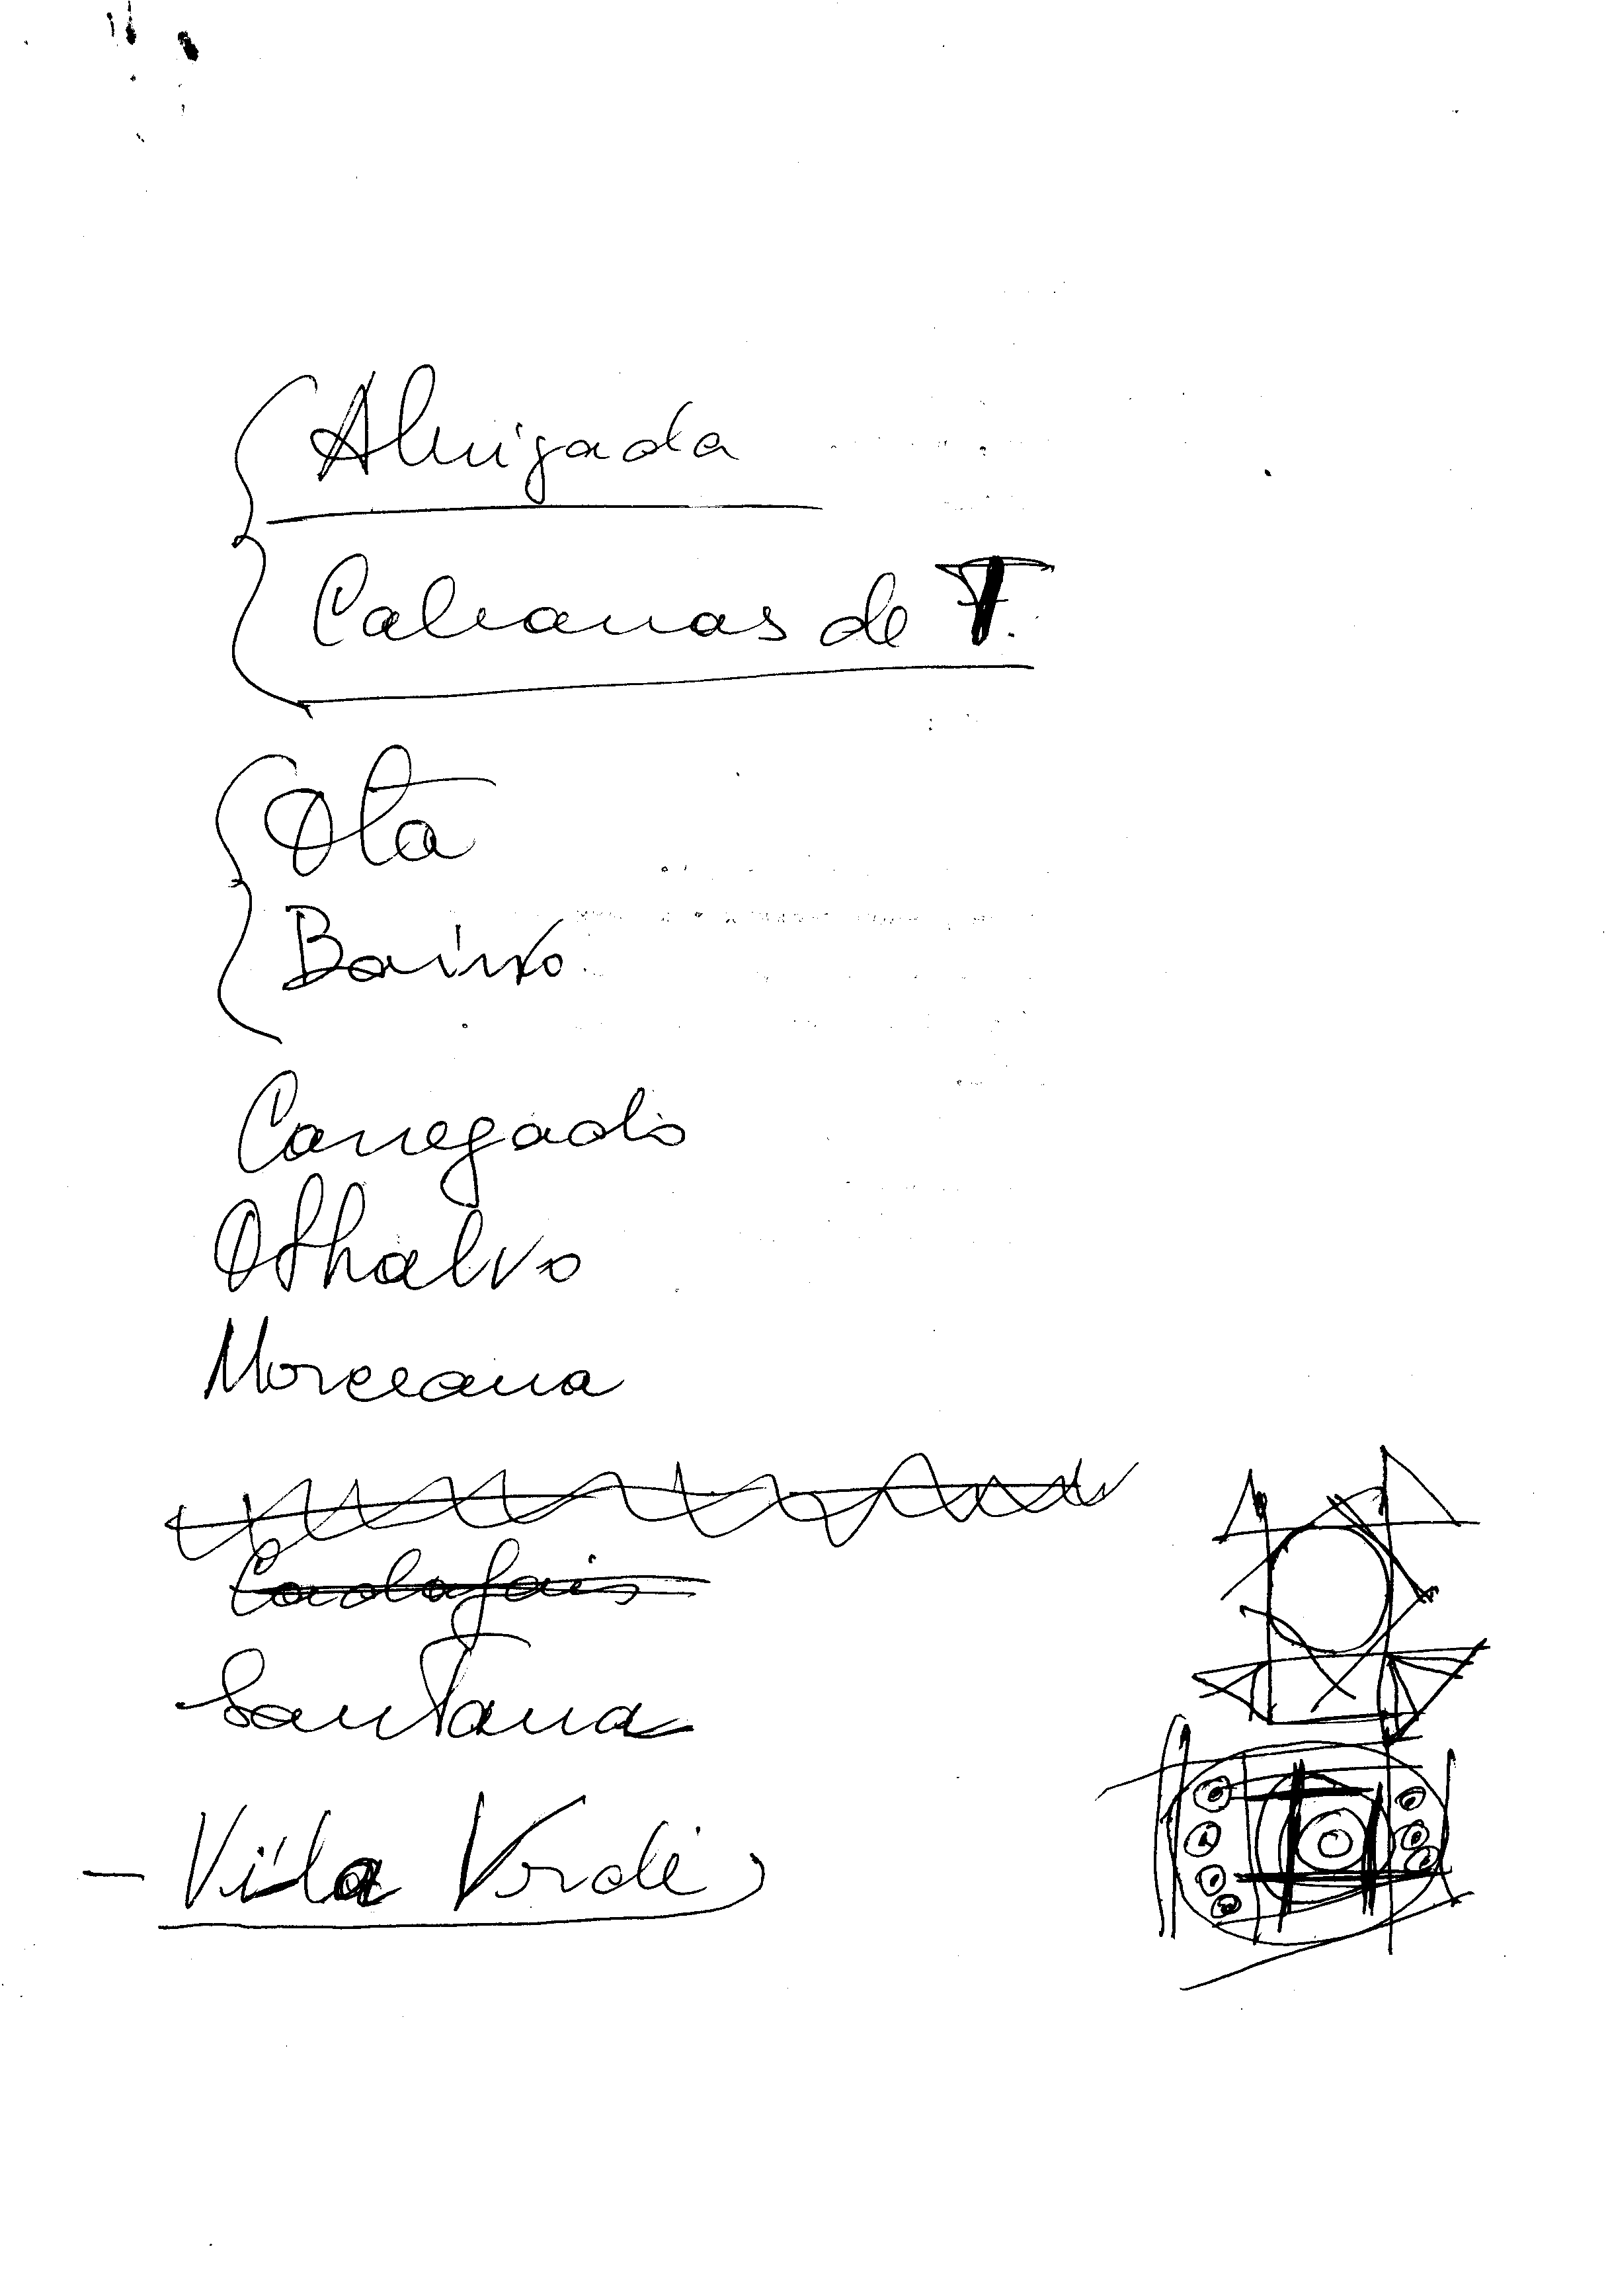 Abrigada
Cabanas de T.
Ota
Bairro
Carregado
Olhalvo
Merceana
Cadafais
Santana
- Vila Verde